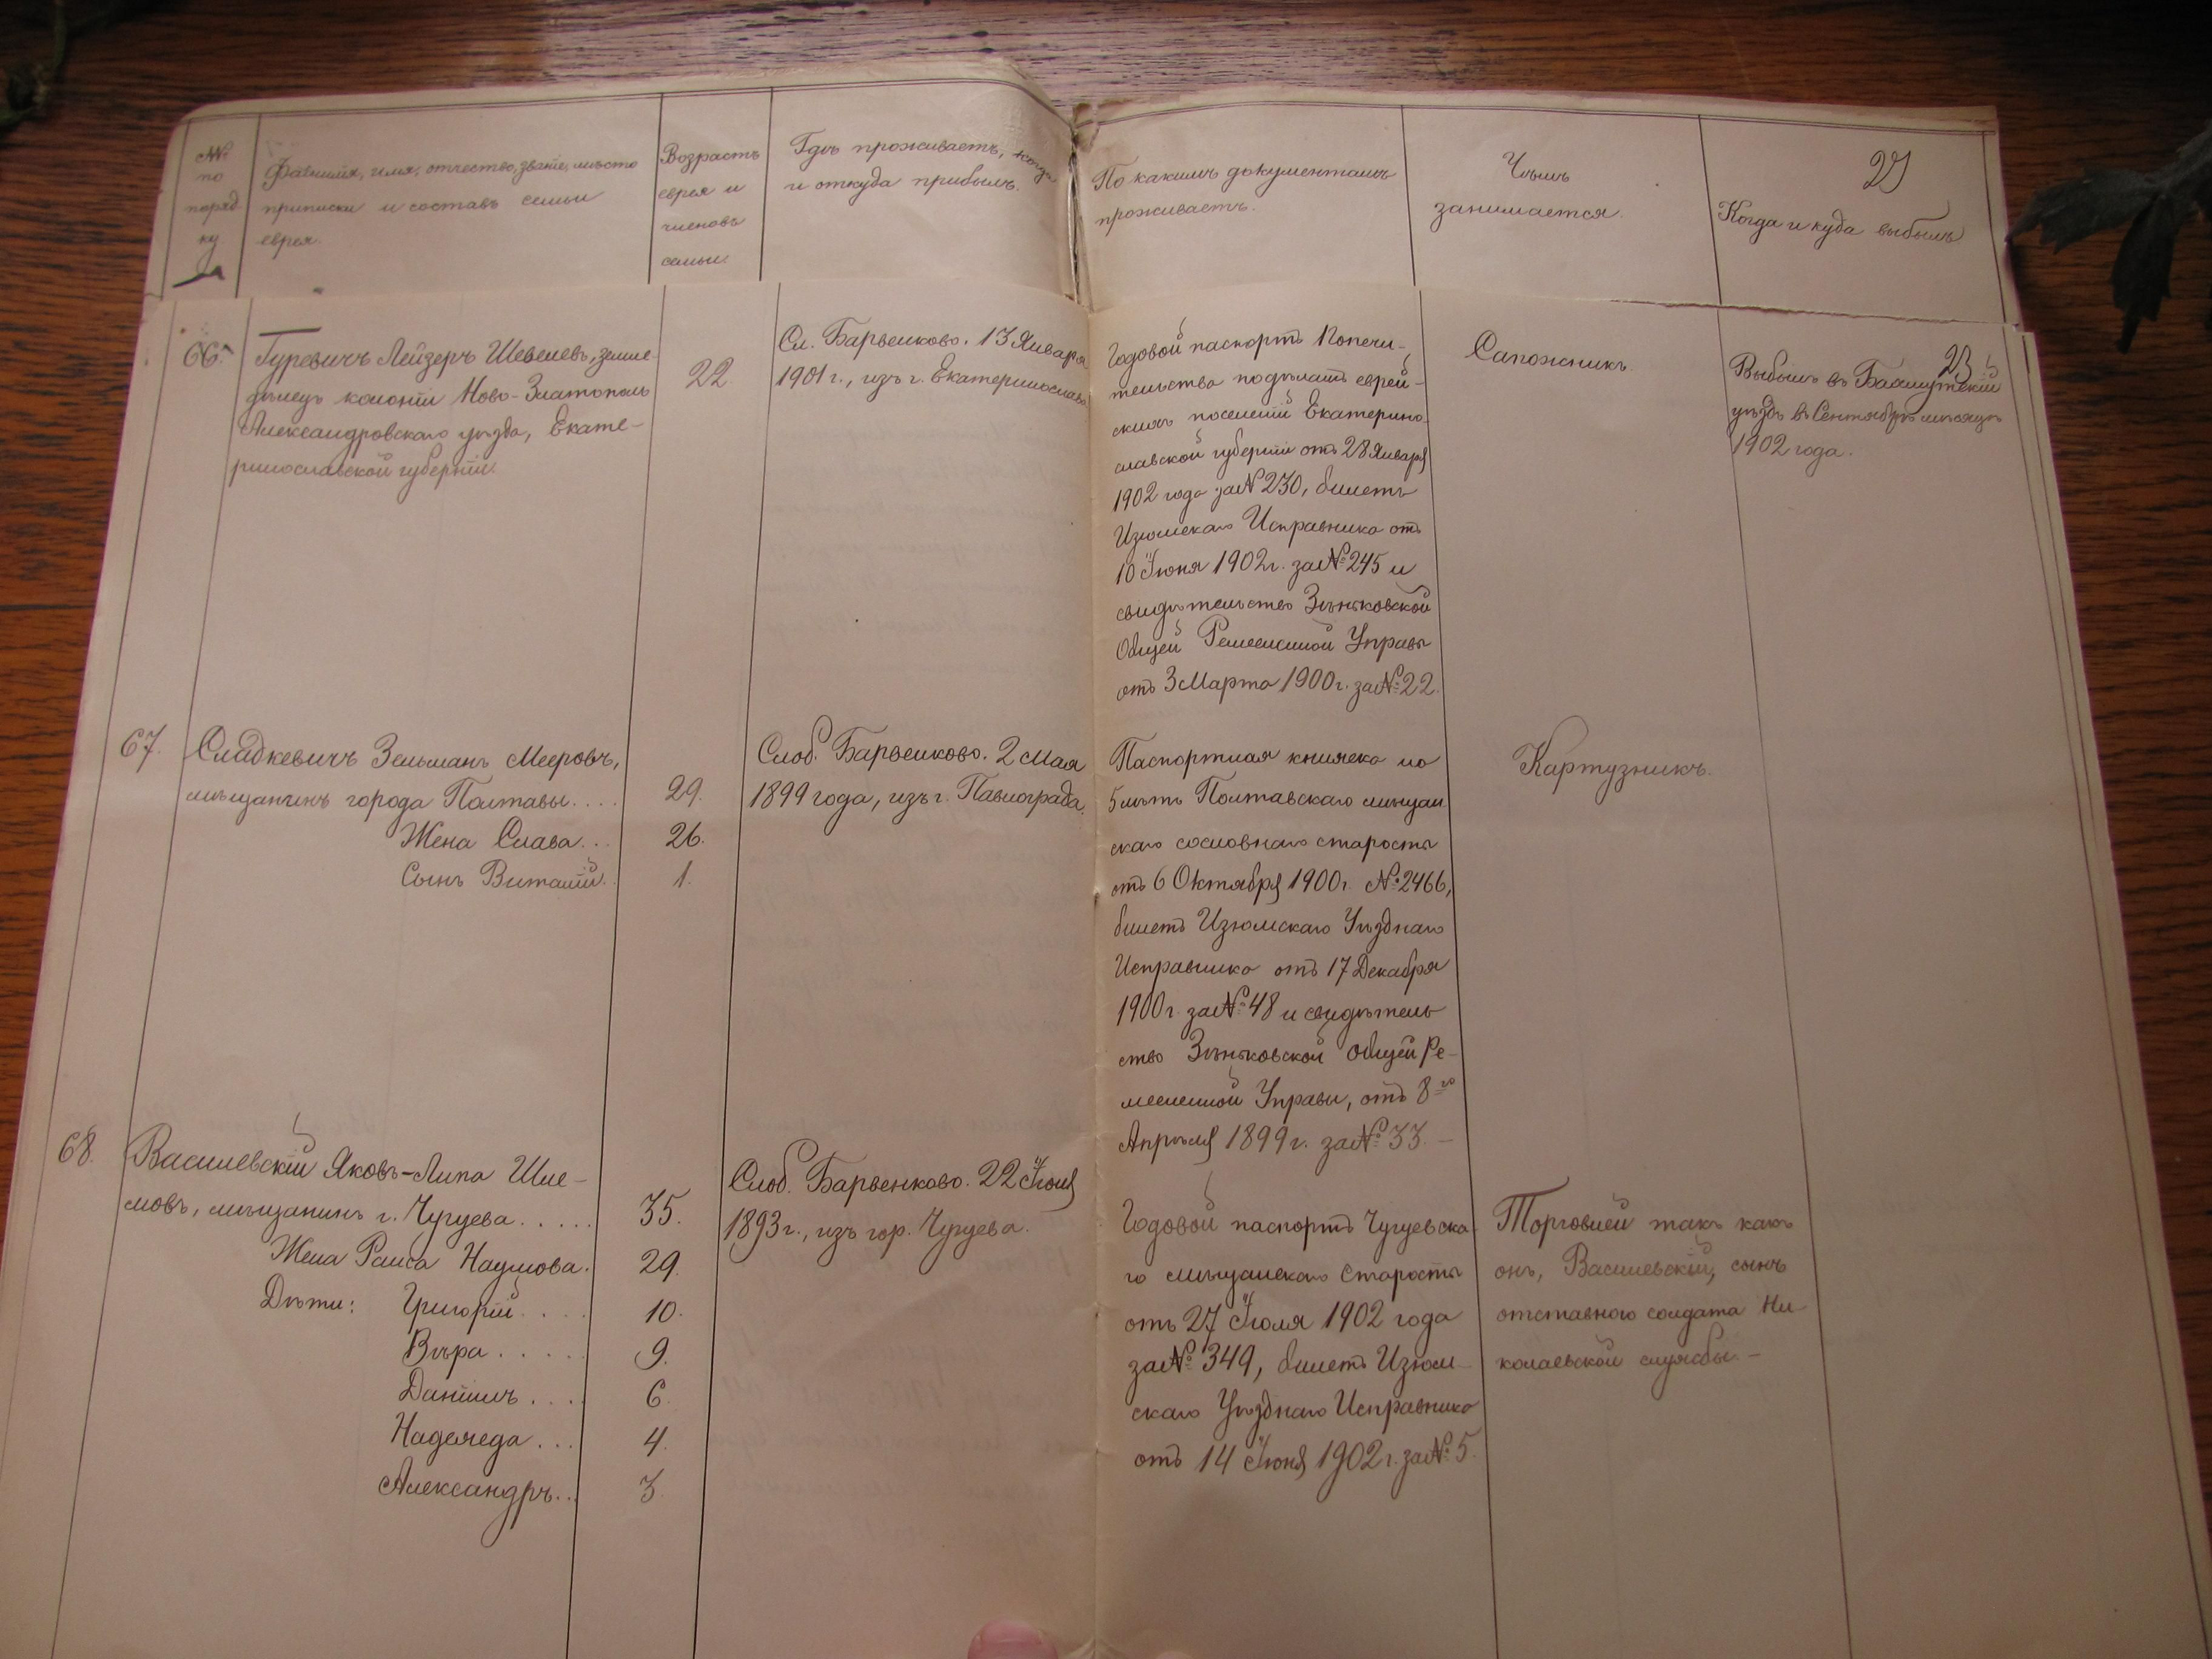 №
по
поряд
ку
Фамилія, имя, отчество, званіе, мѣсто
приписки и составъ семьи
еврея.
Возрастъ
еврея и
членовъ
семьи.
Гдѣ проживаетъ, когда
и откуда прибылъ.
По какимъ документамъ
проживаетъ.
Чѣмъ
занимается.
Когда и куда выбылъ
66.
Гуревичъ Лейзеръ Шевелевъ, земле-
дѣлецъ колоніи Ново-Златополь
Александровскаго уѣзда, Екате-
ринославской губерніи.
22.
Сл. Барвенково. 13 Января
1901 г., изъ г. Екатеринослава
Годовой паспортъ Попечи-
тельства по дѣламъ еврей-
скихъ поселеній Екатерино-
славской губерніи отъ 28 Января
1902 года за № 230, билетъ
Изюмскаго Исправника отъ
10 Іюня 1902 г. за № 245 и
свидѣтельство Зѣньковской
Общей Ремесленной Управы
отъ 3 Марта 1900 г. за № 22.
Сапожникъ
23
Выбылъ въ Бахмутскій
уѣздъ въ Сентябрѣ мѣсяцѣ
1902 года.
67.
Сладкевичъ Зельманъ Мееровъ,
мѣщанинъ города Полтавы....
29.
Жена Слава...
26.
Сынъ Виталій..
1.
Слоб. Барвенково. 2 Мая
1899 года, изъ г. Павлограда.
Паспортная книжка на
5 лѣтъ Полтавскаго мѣщан
скаго сословнаго старосты
отъ 6 Октября 1900 г. № 2466,
билетъ Изюмскаго Уѣзднаго
Исправника отъ 17 Декабря
1900 г. за № 48 и свидѣтель
ство Зѣньковской Общей Ре-
месленной Управы, отъ 8го
Апрѣля 1899 г. за № 33. -
Картузникъ.
68.
Василевскій Яковъ-Липа Шле-
мовъ, мѣщанинъ г. Чугуева.....
35.
Жена Раиса Наумова.
29.
Дѣти: Григорій....
10.
Вѣра.....
9.
Даніилъ....
6.
Надежда...
4.
Александръ...
3.
Слоб. Барвенково. 22 Іюня
1893 г., изъ гор. Чугуева.
Годовой паспортъ Чугуевска
го мѣщанскаго Старосты
отъ 27 Іюля 1902 года
за № 349, билетъ Изюм-
скаго Уѣзднаго Исправника
отъ 14 Іюня 1902 г. за № 5.
Торговлей такъ какъ
онъ, Василевскій, сынъ
отставного солдата Ни-
колаевской службы.-